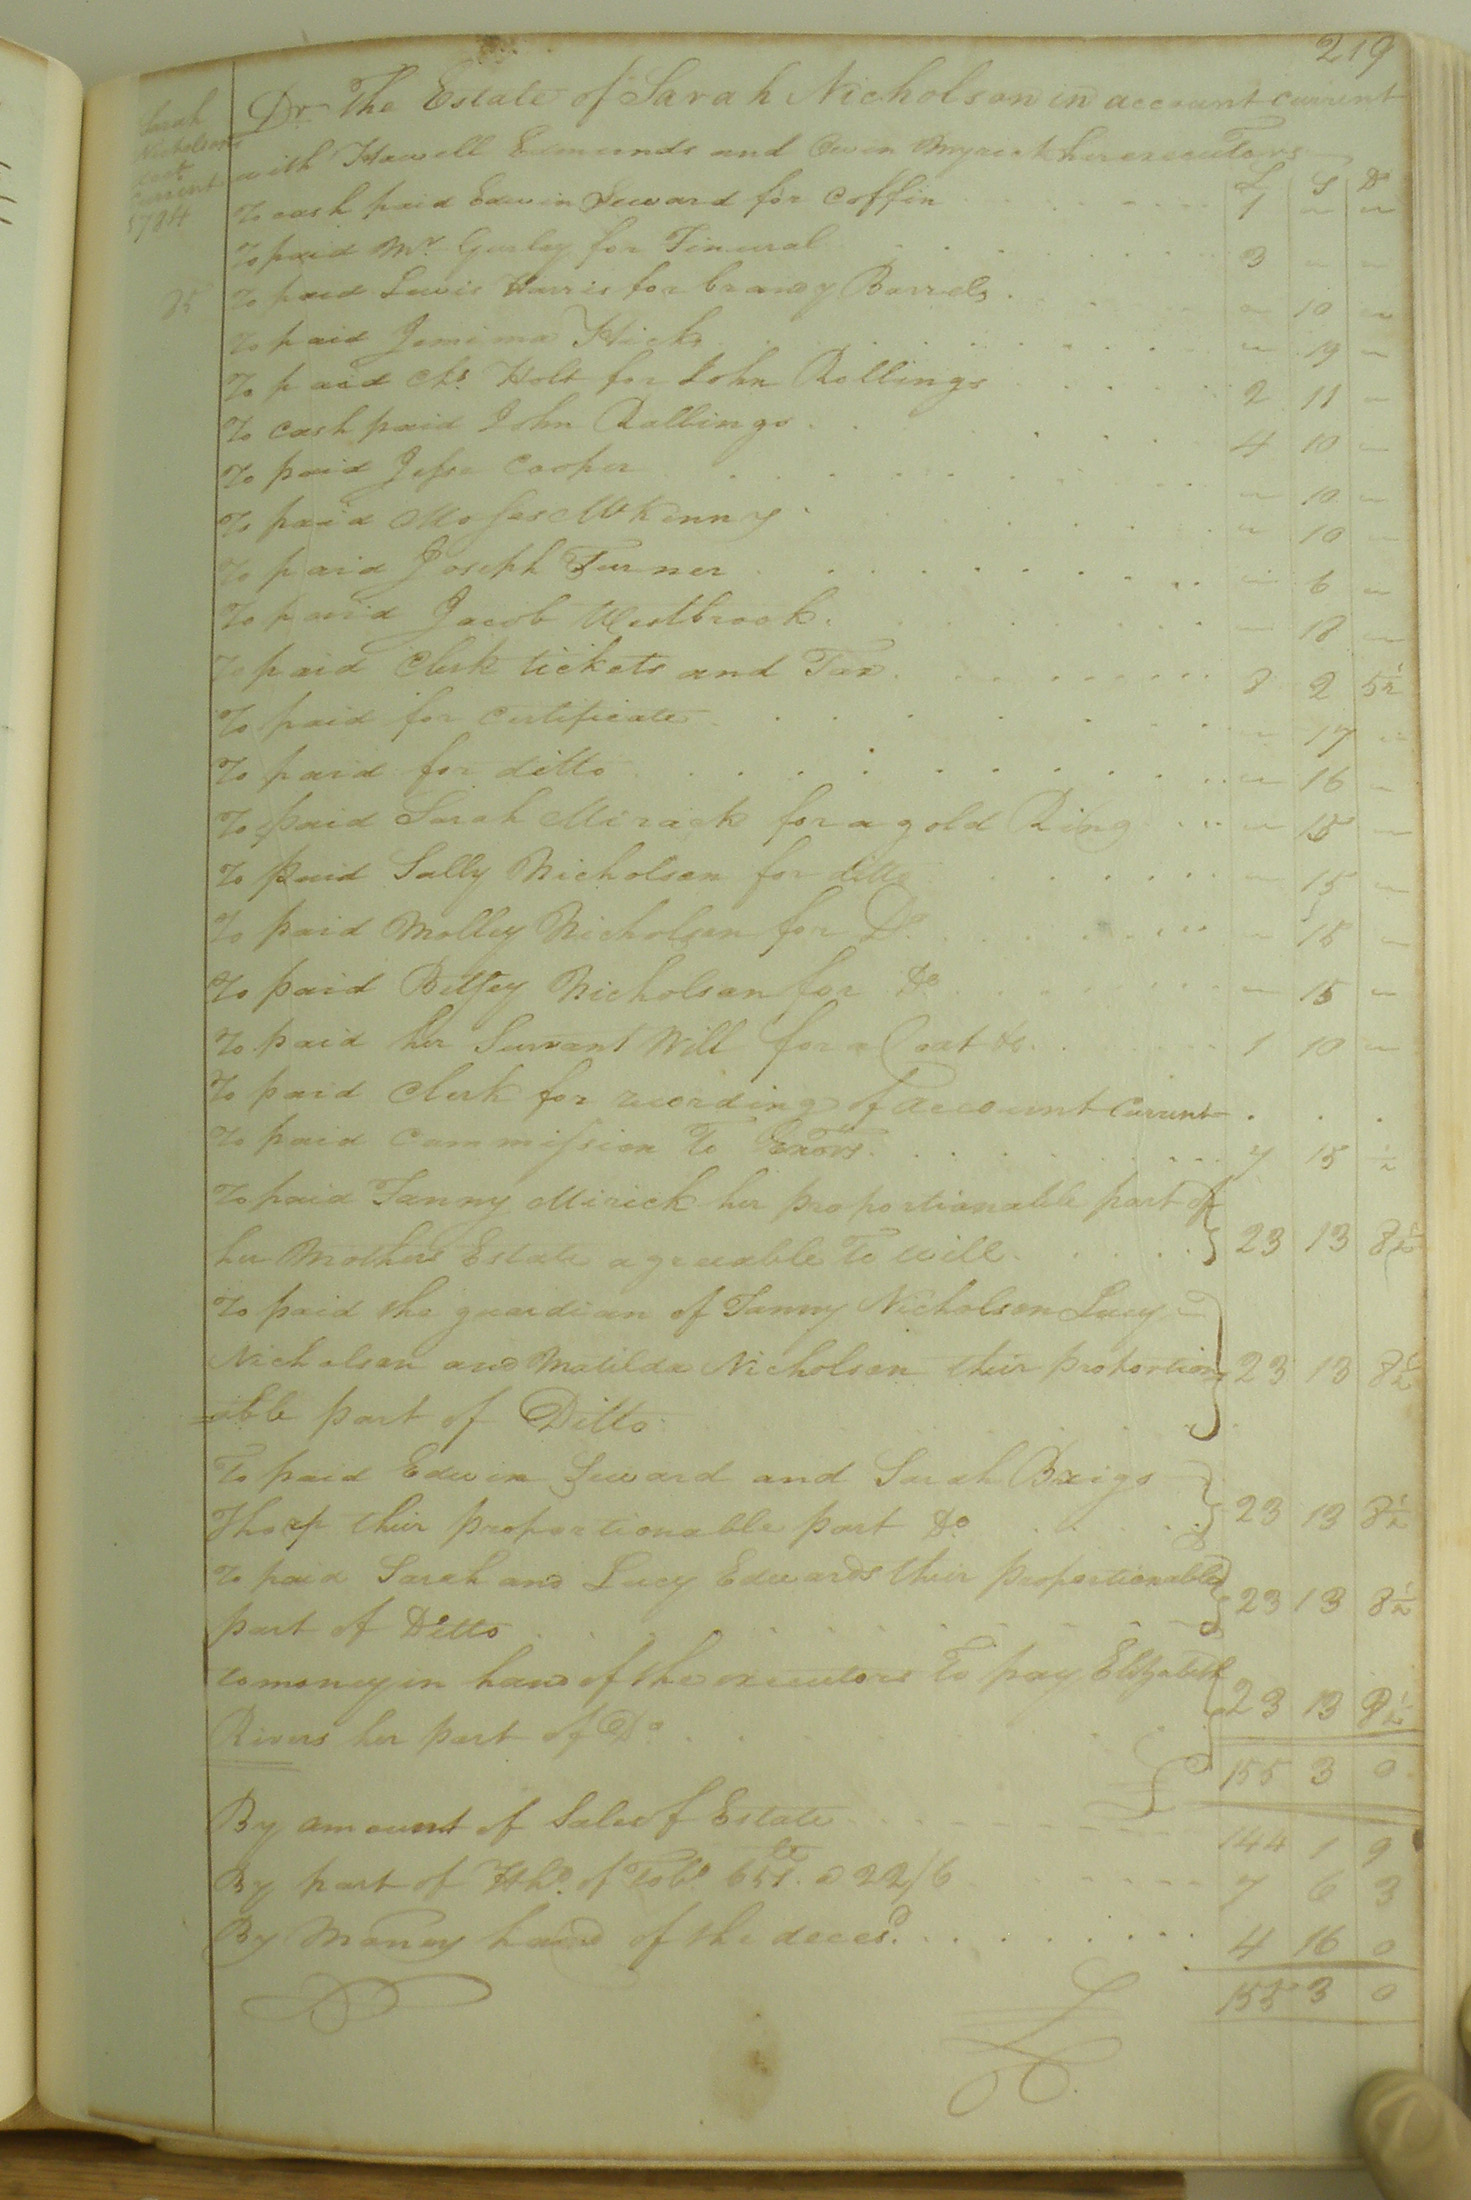 219
Sarah
Nicholson's
acct
Current
1784
Dr The Estate of Sarah Nicholson in account current
with Howell Edmunds and Owen Myrick her executors
£ S D
To cash paid Edwin Seward for Coffin 1 - -
To paid Mr. Gurley for Funeral 3 - -
25 To paid Lewis Harris for brandy Barrels - 10 -
To paid Jemima Hicks - 19 -
To paid Chs. Holt for John Rollings 2 11 -
To cash paid John Rallings 4 10 -
To paid Jesse Cooper - 10 -
To paid Moses McKinny - 10 -
To paid Joseph Turner - 6 -
To paid Jacob Westbrook - 18 -
To paid Clerk tickets and Tax 8 2 5½
To paid for certificate - 17 -
To paid for ditto - 16 -
To paid Sarah Mirack for a gold Ring - 15 -
To paid Sally Nicholson for ditto - 15 -
To paid Molley Nicholson for Do - 15 -
To paid Betsey Nicholson for Do - 15 -
To paid her Servant Will for a Coat &c. 1 10 -
To paid Clerk for recording of account Current . . .
To paid Commission To Exors. 7 15 ½
To paid Fanny Mirick her proportionable part of
her Mothers Estate agreeable To Will 23 13 8½
To paid the guardian of Fanny Nicholson Lucy
Nicholson and Matilda Nicholson their proportion 23 13 8½
=able part of Ditto
To paid Edwin Seward and Sarah Brigs
Tharp their proportionable part Do 23 13 8½
To paid Sarah and Lucy Edwards their proportionable
part of Ditto 23 13 8½
to money in hand of the executors To pay Elizabeth
Rivers her part of Do 23 13 8½
£ 155 3 0
By amount of Sale of Estate 144 1 9
By part of Hhd. of Tobo. 651 lb @ 22/6 7 6 3
By Money hand of the decesd. 4 16 0
£ 155 3 0